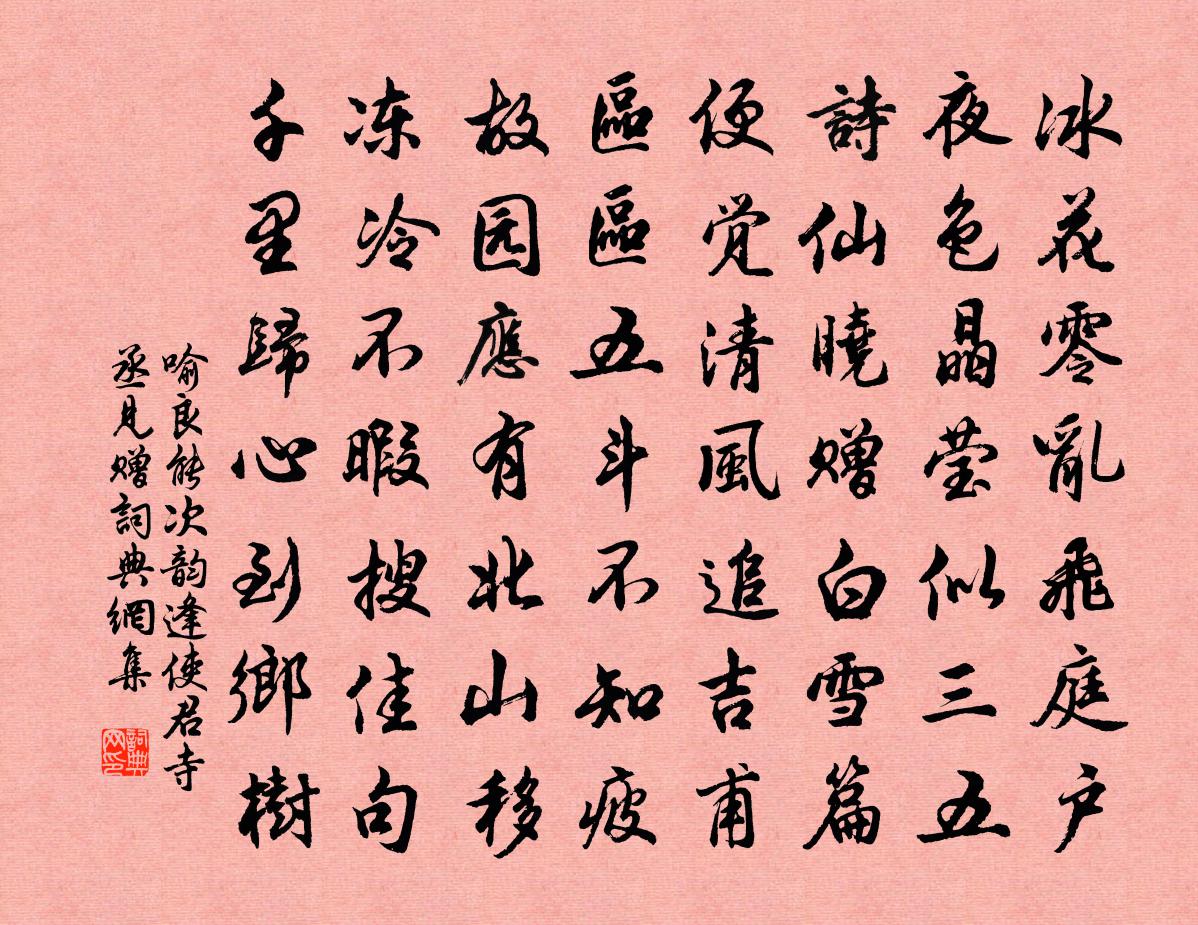 冰花零亂飛庭户
夜色晶莹似三五
詩仙曉赠白雪篇
便觉清風追吉甫
區區五斗不知疲
故园應有北山移
冻冷不暇搜佳句
千里歸心到鄉樹
喻良能次韵逢使君寺
丞見赠詞典網集
詞典網印